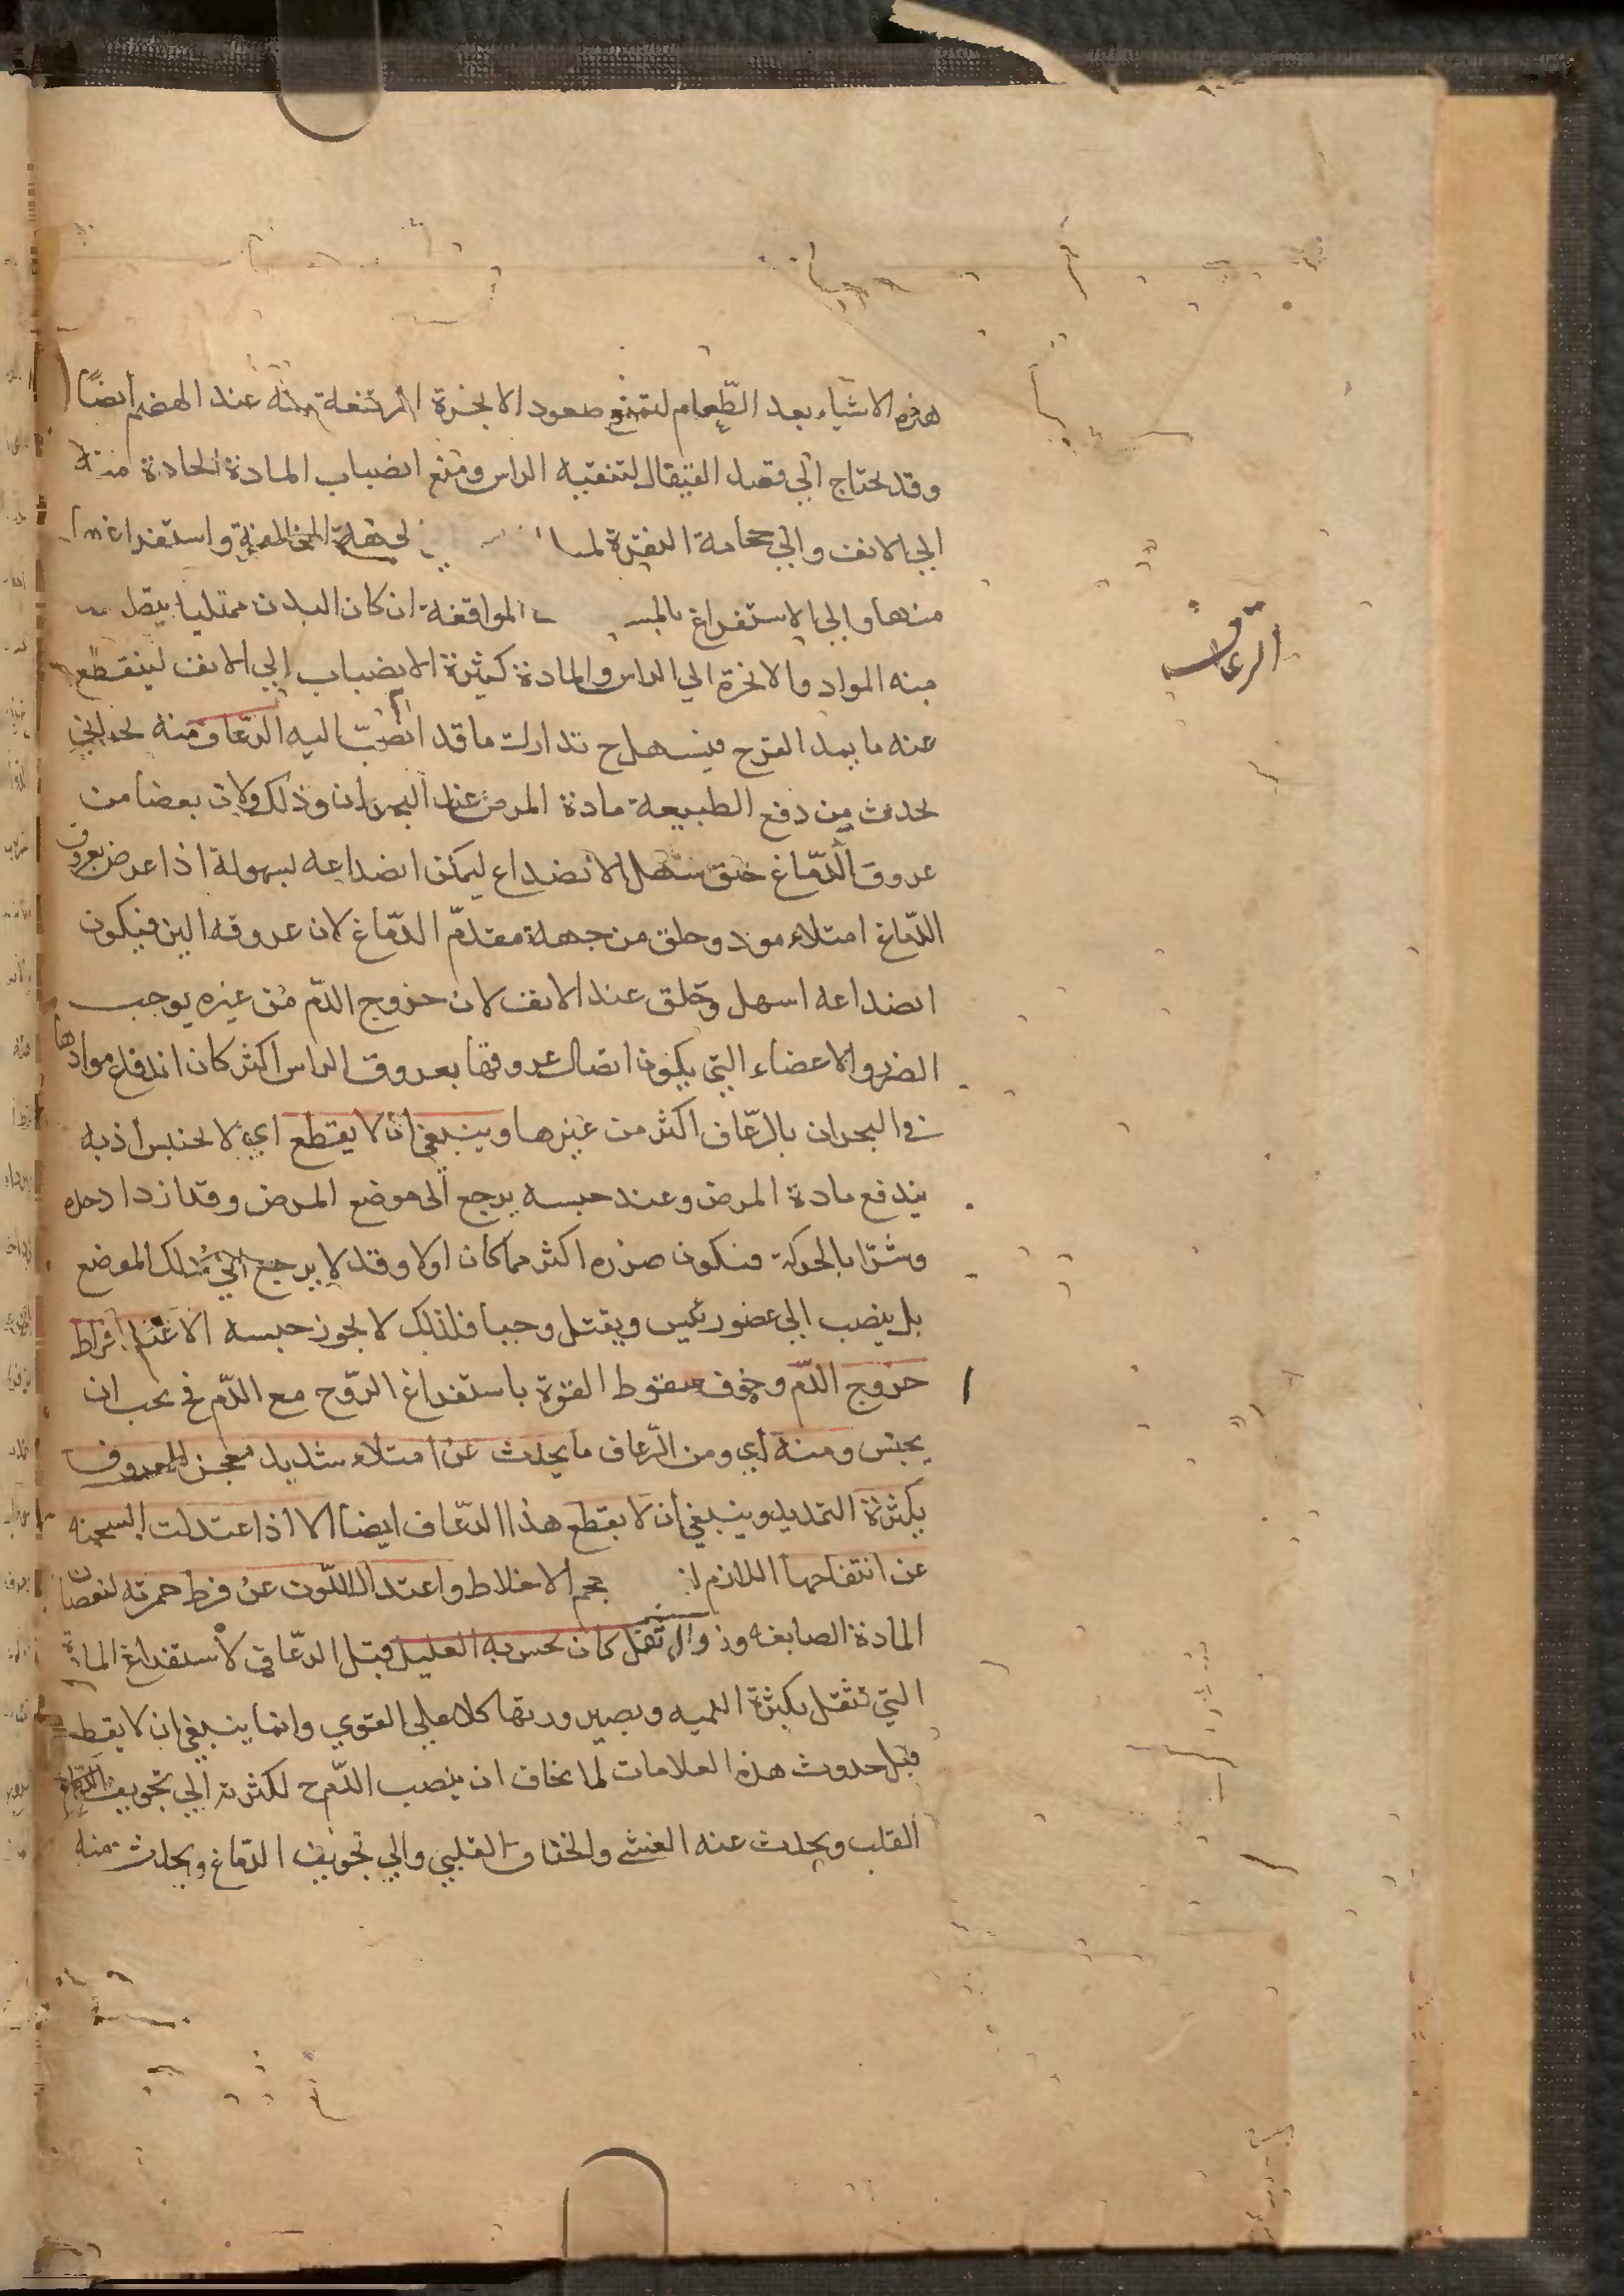 هذه الاشياء بعد الطّعام لتمنع صعود الابخرة المرتفعة منه عند الهضم ايضًا
وقد يحتاج الي فصد القيفال لتنقيه الراس ومنع انصباب المادة الحادة منه
الي الانف والي حجامة النقرة الي جهة المخالفة واستفراغها
منها والي الاستفراغ الموافقة ان كان البدن ممتليا
منه المواد والابخرة الي الراس والمادة كثيرة الانصباب الي الانف لينقطع
عنه ما يمد القرح فيسهل ح تدارك ما قد انصبّ اليه الرّعاف منه بحراني
يحدث من دفع الطبيعة مادة المرض عند البحران وذلك لان بعضا من
عروق الدّماغ خلق سهل الانصداع ليمكن انصداعه بسهولة اذا عرض بعروق
الدّماغ امتلاء مود وخلق من جهة مقدّم الدّماغ لان عروقه الين فيكون
انصداعه اسهل وخلق عند الانف لان خروج الدّم من غيره يوجب
الضرر والاعضاء التي يكون اتصال عروقها بعروق الراس اكثر كان اندفاع موادها
في البحران بالرّعاف اكثر من غيرها وينبغي ان لا يقطع اي لا يحتبس اذ به
يندفع مادة المرض وعند حبسه يرجع الي موضع المرض وقد ازداد حده
وشرّا بالحركة فيكون ضرره اكثر مما كان اولا وقد لا يرجع الي ذلك الموضع
بل ينصب الي عضو رئيس ويقتل وحيا فلذلك لا يجوز حبسه الا عند افراط
خروج الدّم وخوف سقوط القوة باستفراغ الرّوح مع الدّم فح يجب ان
يحبس ومنه اي ومن الرّعاف ما يحدث عن امتلاء شديد مفجر للعروق
بكثرة التمديد وينبغي ان لا يقطع هذا الرّعاف ايضا الا اذا اعتدلت السحنه
عن انتفاخها اللازم حجم الاخلاط واعتدال اللّون عن فرط حمرته لنقصان
المادة الصابغه وزوال ثقل كان يحس به العليل قبل الرّعاف لاستفراغ المادة
التي تثقل بكثرة الكميه وبصيرورتها كلا علي القوي وانما ينبغي ان لا يقطع
قبل حدوث هذه العلامات لما يخاف ان ينصب الدّم ح لكثرته الي تجويف
القلب ويحدث عنه الغشي والخناق القلبي والي تجويف الدّماغ ويحدث منه
الرعاف